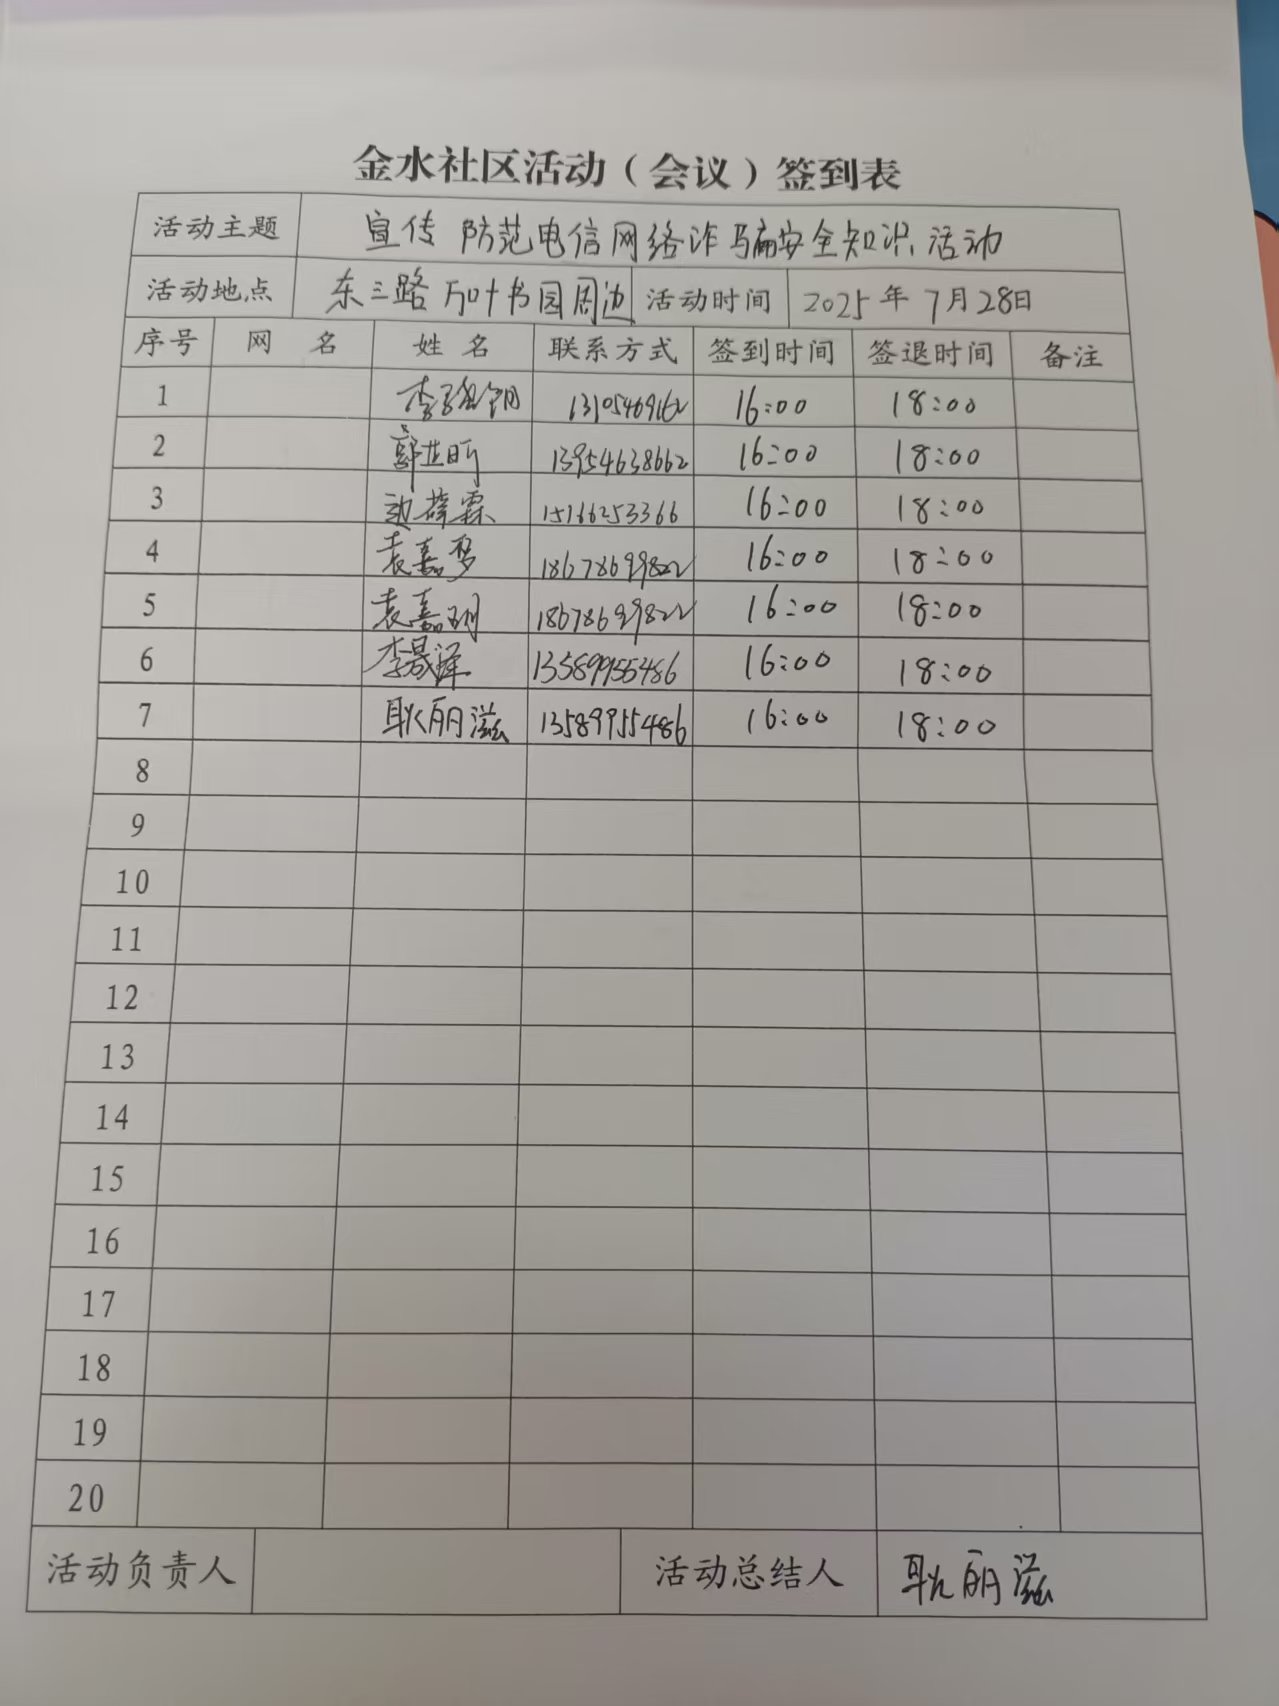 金水社区活动（会议）签到表
活动主题 宣传 防范电信网络诈骗安全知识活动
活动地点 东三路万叶书园周边 活动时间 2025年7月28日
序号 网 名 姓 名 联系方式 签到时间 签退时间 备注
1 李 13105469162 16:00 18:00
2 郭芷昕 13954638662 16:00 18:00
3 霖 15166253366 16:00 18:00
4 袁嘉梦 18678699822 16:00 18:00
5 袁嘉玥 18678699822 16:00 18:00
6 李晟泽 13589955486 16:00 18:00
7 耿丽滋 13589955486 16:00 18:00
8
9
10
11
12
13
14
15
16
17
18
19
20
活动负责人 活动总结人 耿丽滋